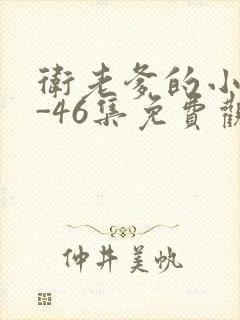 衛老爹的小
-46集免費觀
仲井美帆